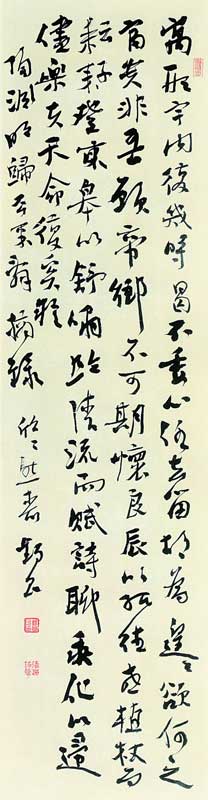 寓形宇內復幾時曷不委心任去留胡為遑遑欲何之
富貴非吾願帝鄉不可期懷良辰以孤往或植杖而
耘耔登東皋以舒嘯臨清流而賦詩聊乘化以歸
盡樂夫天命復奚疑
陶淵明歸去來辭摘錄